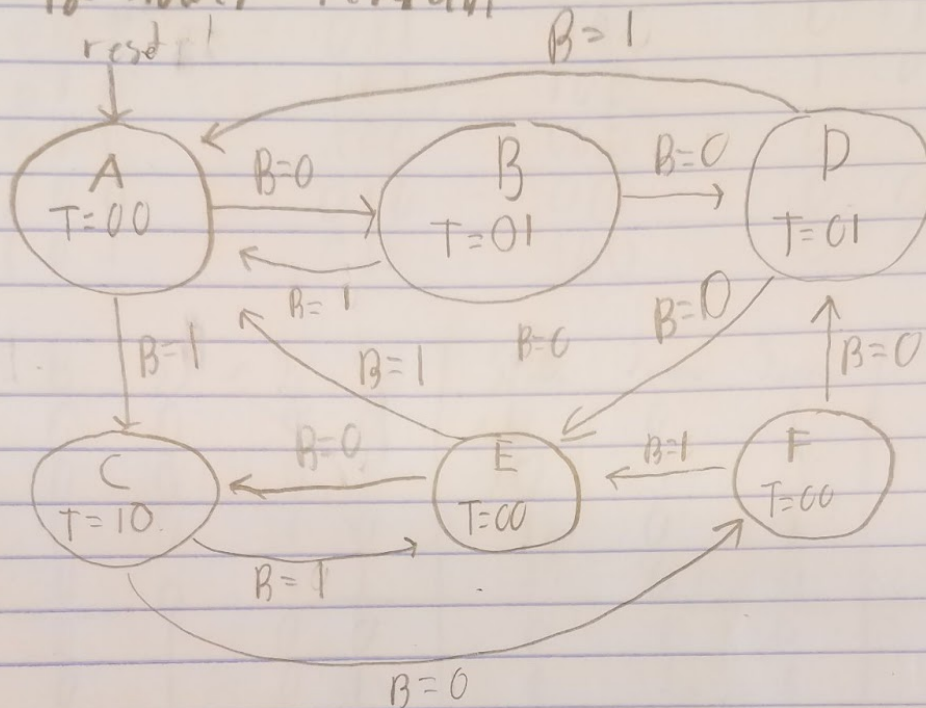 reset
B=1
A
T=00
B=0
B
T=01
B=0
D
T=01
B=1
B=1
B=1
B=0
B=0
B=0
C
T=10
B=0
E
T=00
B=1
F
T=00
B=1
B=0